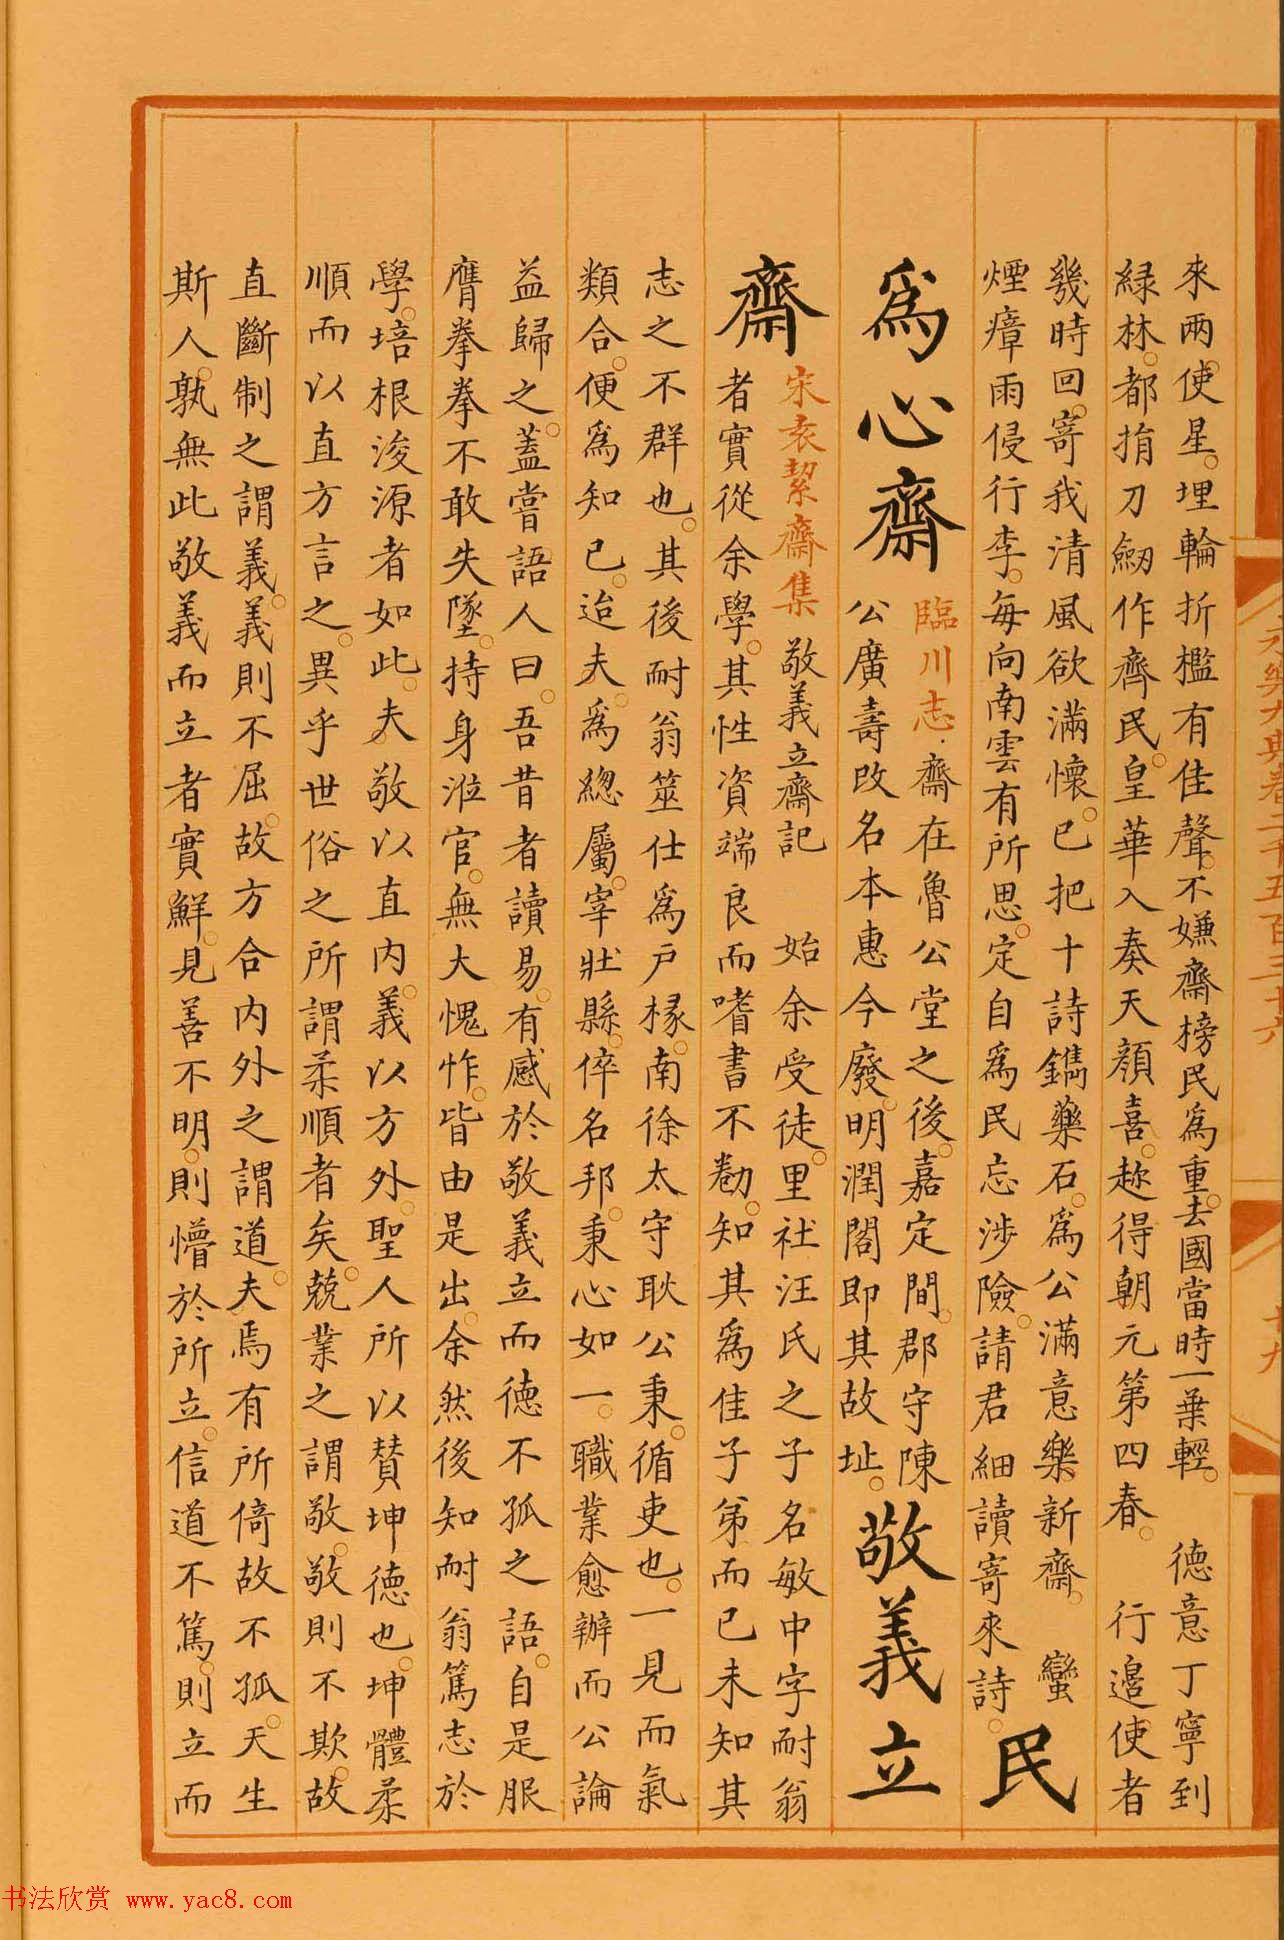 來兩使星。埋輪折檻有佳聲。不嫌齋榜民為重。去國當時一葉輕。　德意丁寧到
綠林。都捐刀劒作齊民。皇華入奏天顏喜。趂得朝元第四春。　行邉使者
幾時回。寄我清風欲滿懷。已把十詩鐫藥石。為公滿意樂新齋。　蠻
煙瘴雨侵行李。每向南雲有所思。定自為民忘涉險。請君細讀寄來詩。
民
為心齋
臨川志・齋在魯公堂之後。嘉定間。郡守陳
公廣壽改名本惠今廢。明潤閣即其故址。
敬義立
齋
宋袁絜齋集 敬義立齋記　始余受徒。里社汪氏之子名敏中字耐翁
者實從余學。其性資端良而嗜書不勌。知其為佳子弟而已未知其
志之不群也。其後耐翁筮仕為戶掾。南徐太守耿公秉。循吏也。一見而氣
類合。便為知已。迨夫。為緫屬。宰壯縣。倅名邦。秉心如一。職業愈辦而公論
益歸之。蓋嘗語人曰。吾昔者讀易。有感於敬義立而德不孤之語。自是服
膺拳拳不敢失墜。持身涖官。無大愧怍。皆由是出。余然後知耐翁篤志於
學。培根浚源者如此。夫敬以直內。義以方外。聖人所以賛坤德也。坤體柔
順而以直方言之。異乎世俗之所謂柔順者矣。兢業之謂敬。敬則不欺。故
直斷制之謂義。義則不屈。故方合内外之謂道。夫焉有所倚故不孤。天生
斯人。孰無此敬義而立者實鮮。見善不明。則懵於所立。信道不篤。則立而
永樂大典卷二千五百三十六
十九
书法欣赏 www.yac8.com